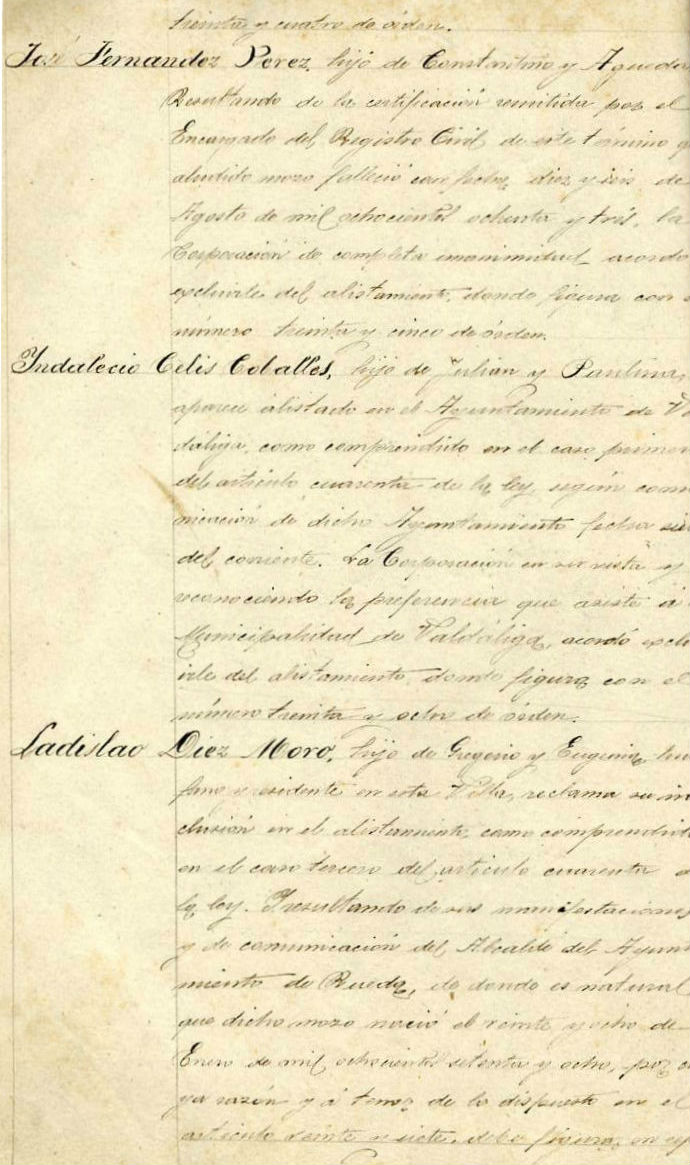 treinta y cuatro de órden.
José Fernandez Perez, hijo de Constantino y Agueda
Resultando de la certificación remitida por el
Encargado del Registro Civil de este término q
aludido mozo falleció con fecha diez y seis de
Agosto de mil ochocientos ochenta y tres, la
Corporación de completa unanimidad acordó
excluirle del alistamiento, donde figura con e
número treinta y cinco de órden.
Indalecio Celis Ceballos, hijo de Julian y Paulina,
aparece alistado en el Ayuntamiento de Va
dáliga, como comprendido en el caso primer
del artículo cuarenta de la ley, según comu
nicación de dicho Ayuntamiento fecha
del corriente. La Corporación en su vista y
reconociendo la preferencia que asiste á
Municipalidad de Valdáliga, acordó exclu
irle del alistamiento, donde figura con el
número treinta y ocho de órden.
Ladislao Diez Moro, hijo de Gregorio y Eugenia, huer
fano y residente en esta Villa, reclama su in
clusión en el alistamiento, como comprendido
en el caso tercero del artículo cuarenta d
la ley. Y resultando de sus manifestaciones
y de comunicación del Alcalde del Ayunt
miento de Rueda, de donde es natural
que dicho mozo nació el veinte y ocho de
Enero de mil ochocientos setenta y ocho, por cu
ya razón y á tenor de lo dispuesto en el
artículo veinte y siete, debe figurar en